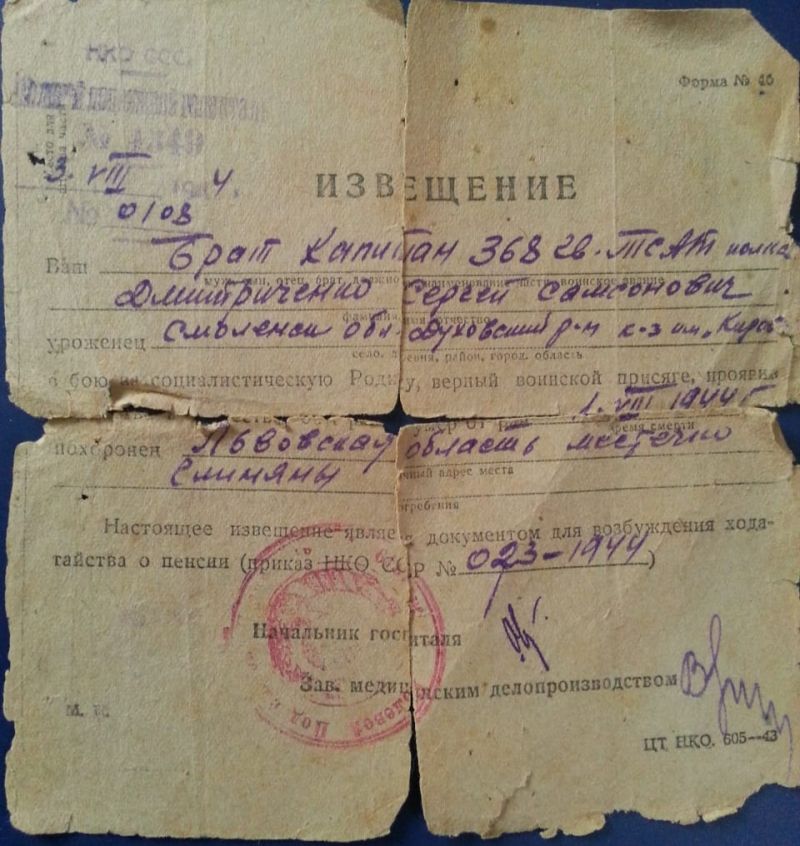 НКО СССР
Форма № 46
№ 4349
3. VIII 1944.
№ 0108
ИЗВЕЩЕНИЕ
Ваш Брат Капитан 368 гв. ТСАП полка
муж, сын, отец, брат, должность, наименование части, воинское звание
Дмитриченко Сергей Самсонович
фамилия, имя, отчество
уроженец Смоленск обл. Духовский р-н к-з им. „Киров"
село, деревня, район, город, область
в бою за социалистическую Родину, верный воинской присяге, проявив
умер от ран 1. VIII 1944 г
время смерти
похоронен Львовская область местечко
адрес места
погребения
Настоящее извещение является документом для возбуждения хода-
тайства о пенсии (приказ НКО СССР № 023-1944)
Начальник госпиталя
Зав. медицинским делопроизводством
М. П.
ЦТ НКО. 605—43